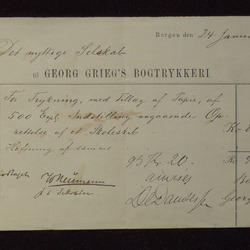 Bergen den 24 Janu
Det nyttige Selskab
til GEORG GRIEG'S BOGTRYKKERI
For Trykning, med Tillæg af Papir, af
500 Expl. Indstilling angaaende Op
rettelse af et Skoleskib
Hæftning af samme
Kr
93 Kr 20
anvises
W Neumann
Georg